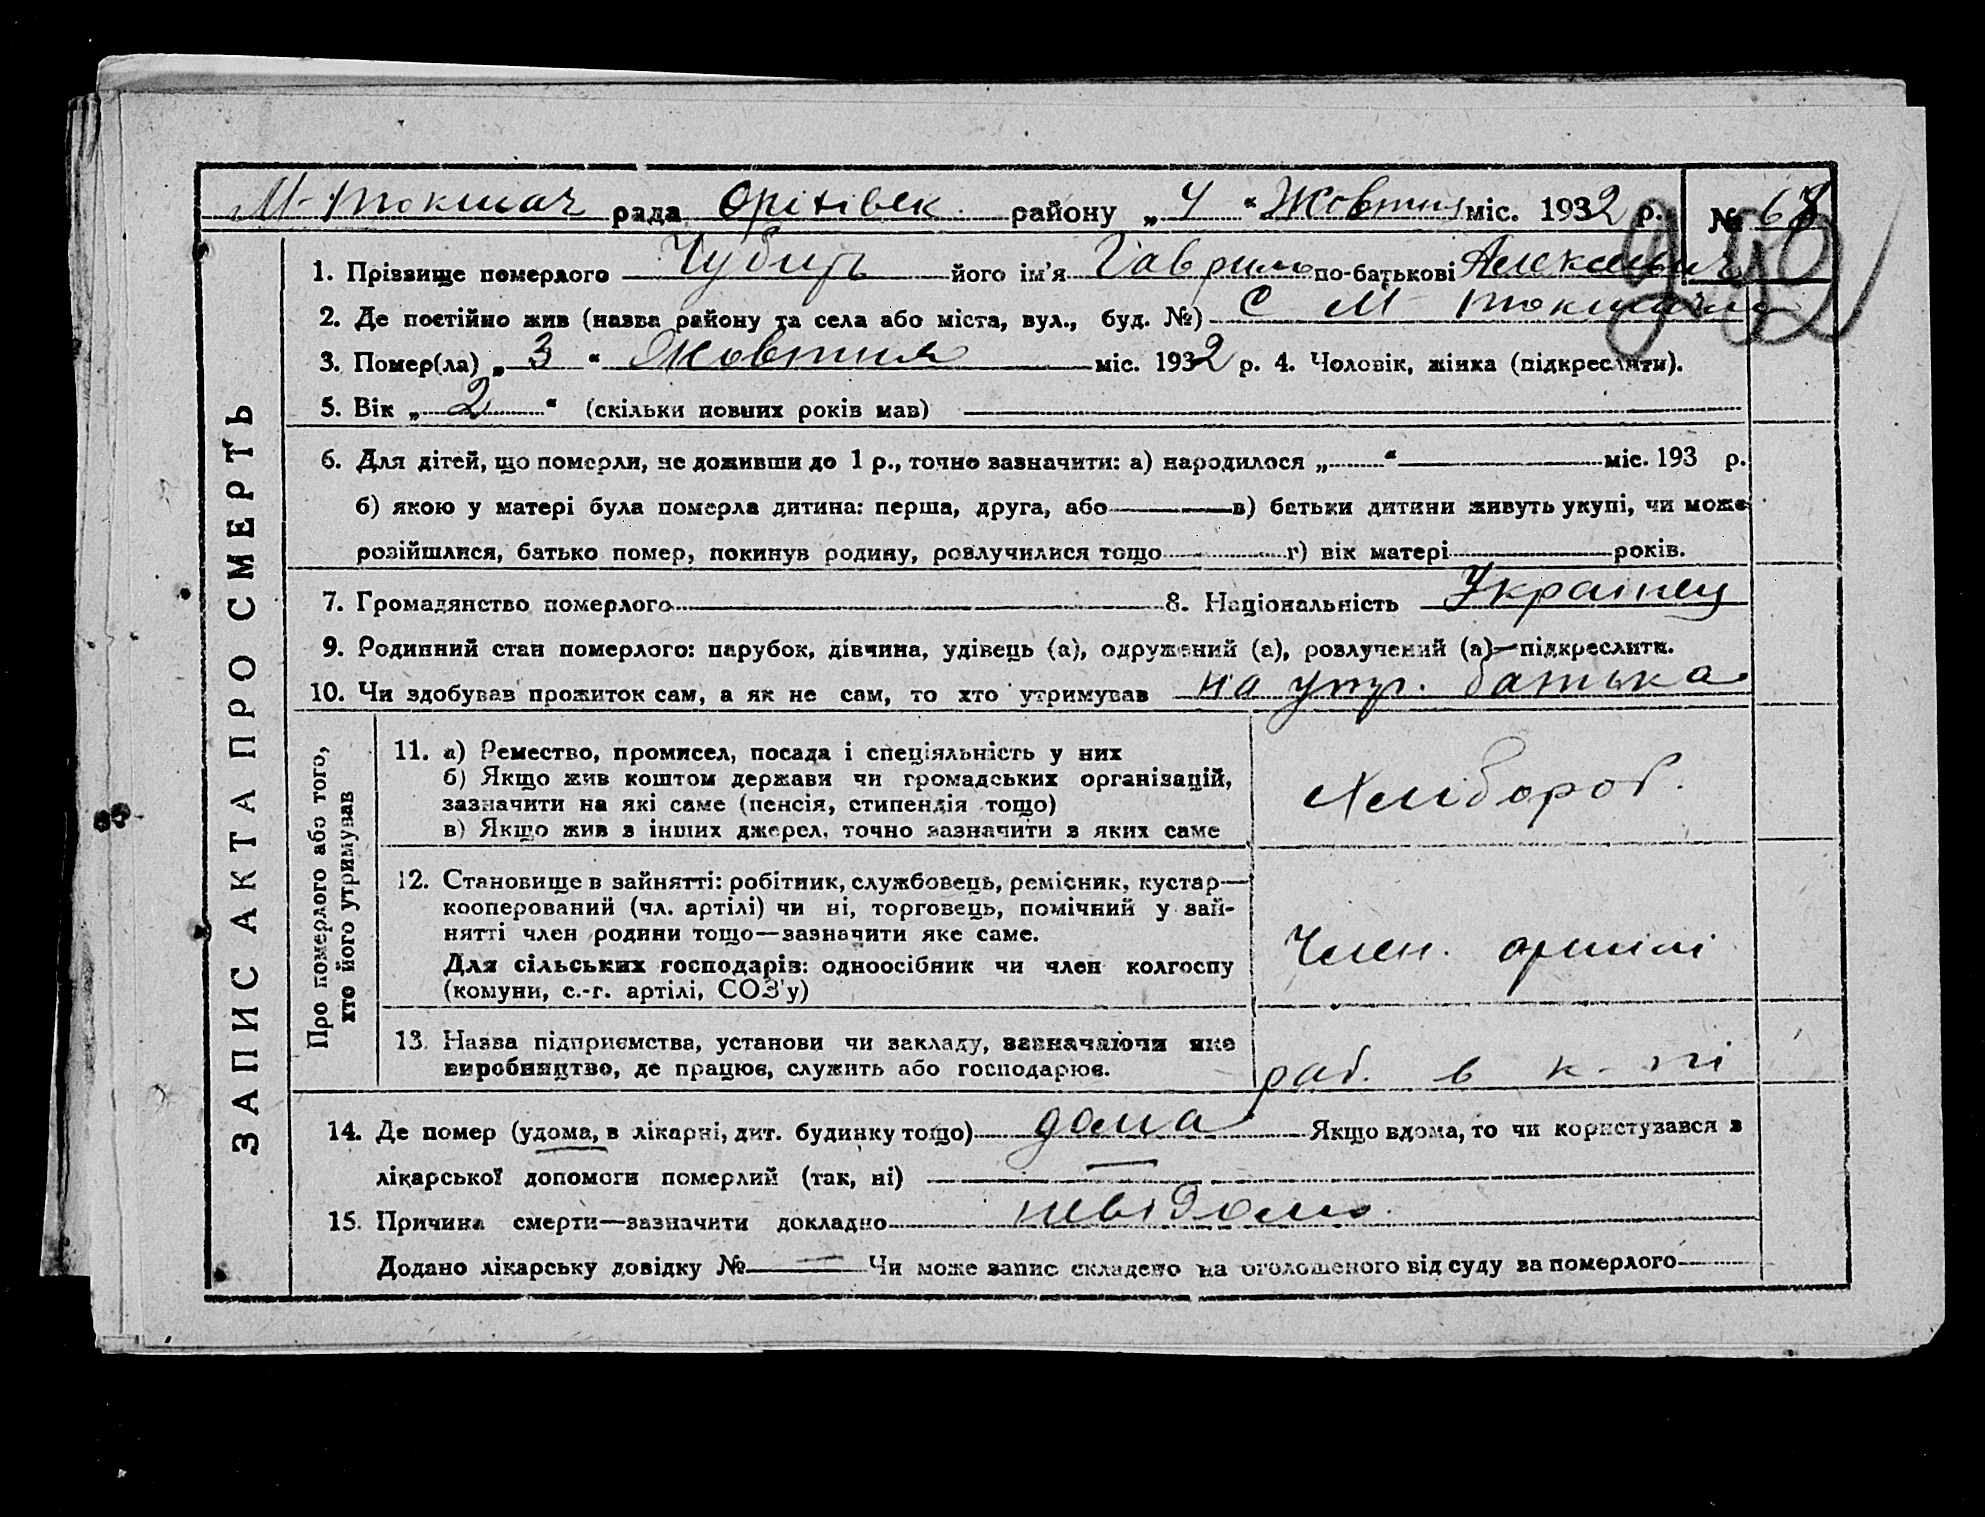 М-Токмач рада Оріхівск району „4“ Жовтня міс. 1932 р. № 68
942
ЗАПИС АКТА ПРО СМЕРТЬ
1. Прізвище померлого Чубирь його ім'я Гаврило по-батькові Алексєевич
2. Де постійно жив (назва району та села або міста, вул., буд. №) С М Токмачка
3. Помер(ла) „3“ Жовтня міс. 1932 р. 4. Чоловік, жінка (підкреслити).
5. Вік „2“ (скільки повних років мав)
6. Для дітей, що померли, не доживши до 1 р., точно зазначити: а) народилося „ “ міс. 193 р.
б) якою у матері була померла дитина: перша, друга, або в) батьки дитини живуть укупі, чи може
розійшлися, батько помер, покинув родину, розлучилися тощо г) вік матері років.
7. Громадянство померлого 8. Національність Українец
9. Родинний стан померлого: парубок, дівчина, удівець (а), одружений (а), розлучений (а)—підкреслити.
10. Чи здобував прожиток сам, а як не сам, то хто утримував на утр. батька
Про померлого або того,
хто його утримував
11. а) Ремество, промисел, посада і спеціяльність у них
б) Якщо жив коштом держави чи громадських організацій,
зазначити на які саме (пенсія, стипендія тощо)
в) Якщо жив з інших джерел, точно зазначити з яких саме
Хлібороб.
12. Становище в зайнятті: робітник, службовець, ремісник, кустар—
кооперований (чл. артілі) чи ні, торговець, помічний у зай-
нятті член родини тощо—зазначити яке саме.
Для сільських господарів: одноосібник чи член колгоспу
(комуни, с.-г. артілі, СОЗ'у)
Член. артілі
13. Назва підприємства, установи чи закладу, зазначаючи яке
виробництво, де працює, служить або господарює.
раб. в к-пі
14. Де помер (удома, в лікарні, дит. будинку тощо) дома Якщо вдома, то чи користувався з
лікарської допомоги померлий (так, ні) —
15. Причина смерти—зазначити докладно невідомо.
Додано лікарську довідку № — Чи може запис складено на оголошеного від суду за померлого